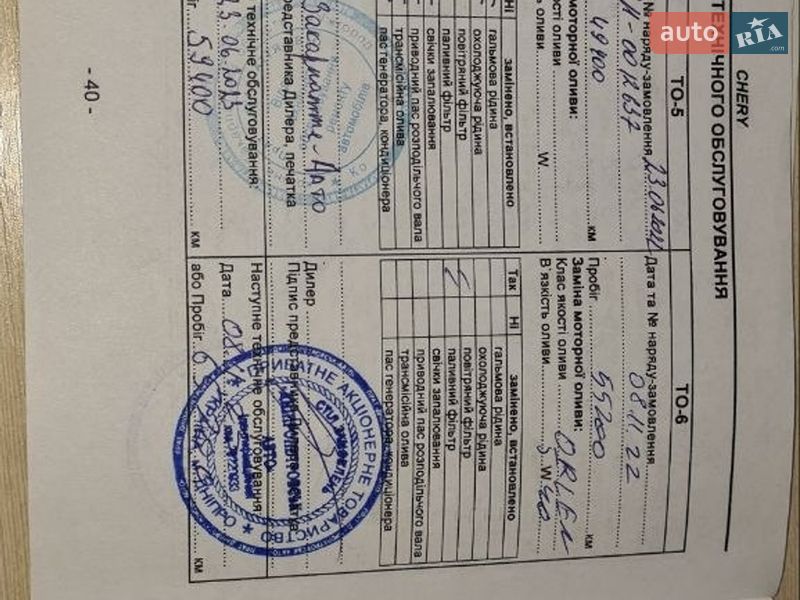 CHERY
ТЕХНІЧНОГО ОБСЛУГОВУВАННЯ
ТО-5
№ наряду-замовлення
23.06.2022
11-0012637
49400
км
моторної оливи:
якості оливи
оливи
W
Ні
замінено, встановлено
гальмова рідина
охолоджуюча рідина
повітряний фільтр
паливний фільтр
свічки запалювання
приводний пас розподільчого вала
трансмісійна олива
пас генератора, кондиціонера
представника Дилера, печатка
технічне обслуговування:
06.2023
59400 км
ТО-6
Дата та № наряду-замовлення
08.11.22
Пробіг 55200 км
Заміна моторної оливи:
Клас якості оливи ORLEN
В'язкість оливи 5 W 40
Так
Ні
замінено, встановлено
гальмова рідина
охолоджуюча рідина
повітряний фільтр
паливний фільтр
свічки запалювання
приводний пас розподільчого вала
трансмісійна олива
пас генератора, кондиціонера
Дилер
Підпис представника Дилера, печатка
Наступне технічне обслуговування:
Дата 08.
або Пробіг 6 км
ПРИВАТНЕ АКЦІОНЕРНЕ ТОВАРИСТВО
СТІЛ ЗАМОВЛЕНЬ
АВТО
- 40 -
auto RIA
.com